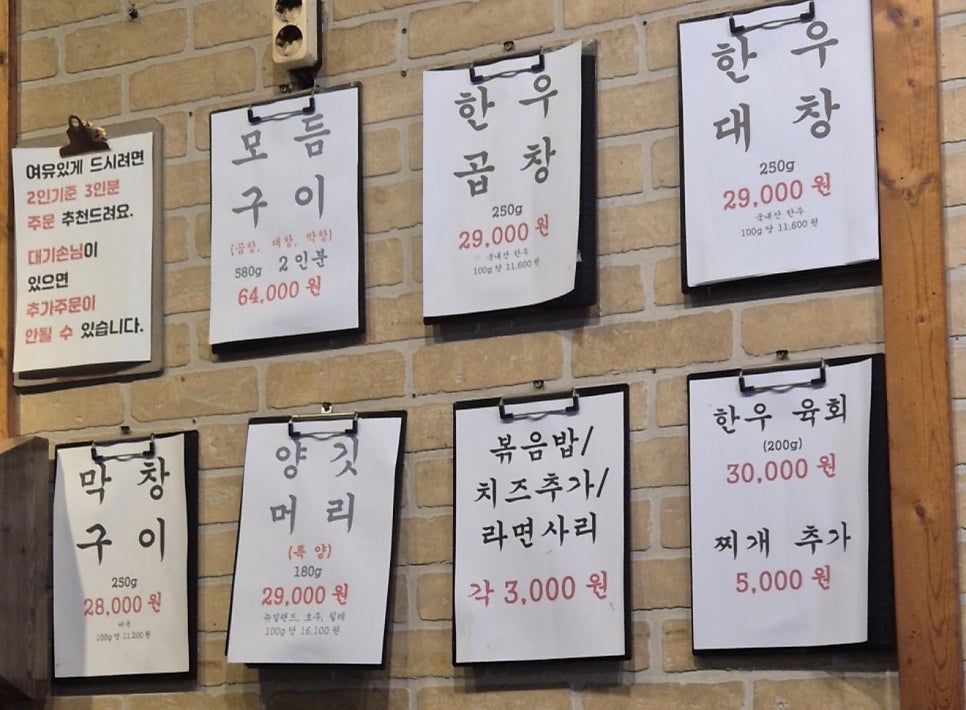 여유있게 드시려면
2인기준 3인분
주문 추천드려요.
대기손님이
있으면
추가주문이
안될 수 있습니다.
모듬
구이
(곱창, 대창, 막창)
580g 2인분
64,000 원
한우
곱창
250g
29,000 원
국내산 한우
100g 당 11,600 원
한우
대창
250g
29,000 원
국내산 한우
100g 당 11,600 원
막창
구이
250g
28,000 원
미국
100g 당 11,200 원
양깃
머리
(특양)
180g
29,000 원
뉴질랜드, 호주, 칠레
100g 당 16,100 원
볶음밥/
치즈추가/
라면사리
각 3,000 원
한우 육회
(200g)
30,000 원
찌개 추가
5,000 원